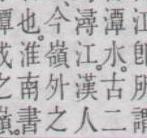 江卽所謂
潭水。古二
潯江。漢人
今嶺外之
也。淮南書
鐔成之嶺。